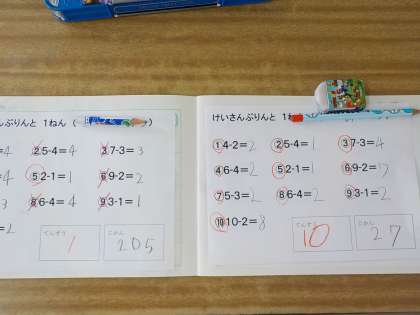 んぷりんと 1ねん(
4 ②5-4=4 ③7-3=3
4 ⑤2-1=1 ⑥9-2=2
3 ⑧6-4=4 ⑨3-1=1
2
てんすう 1 じかん 205
けいさんぷりんと 1ね
①4-2=2 ②5-4=1 ③7-3=4
④6-4=2 ⑤2-1=1 ⑥9-2=7
⑦5-3=2 ⑧6-4=2 ⑨3-1=2
⑩10-2=8
てんすう 10 じかん 27